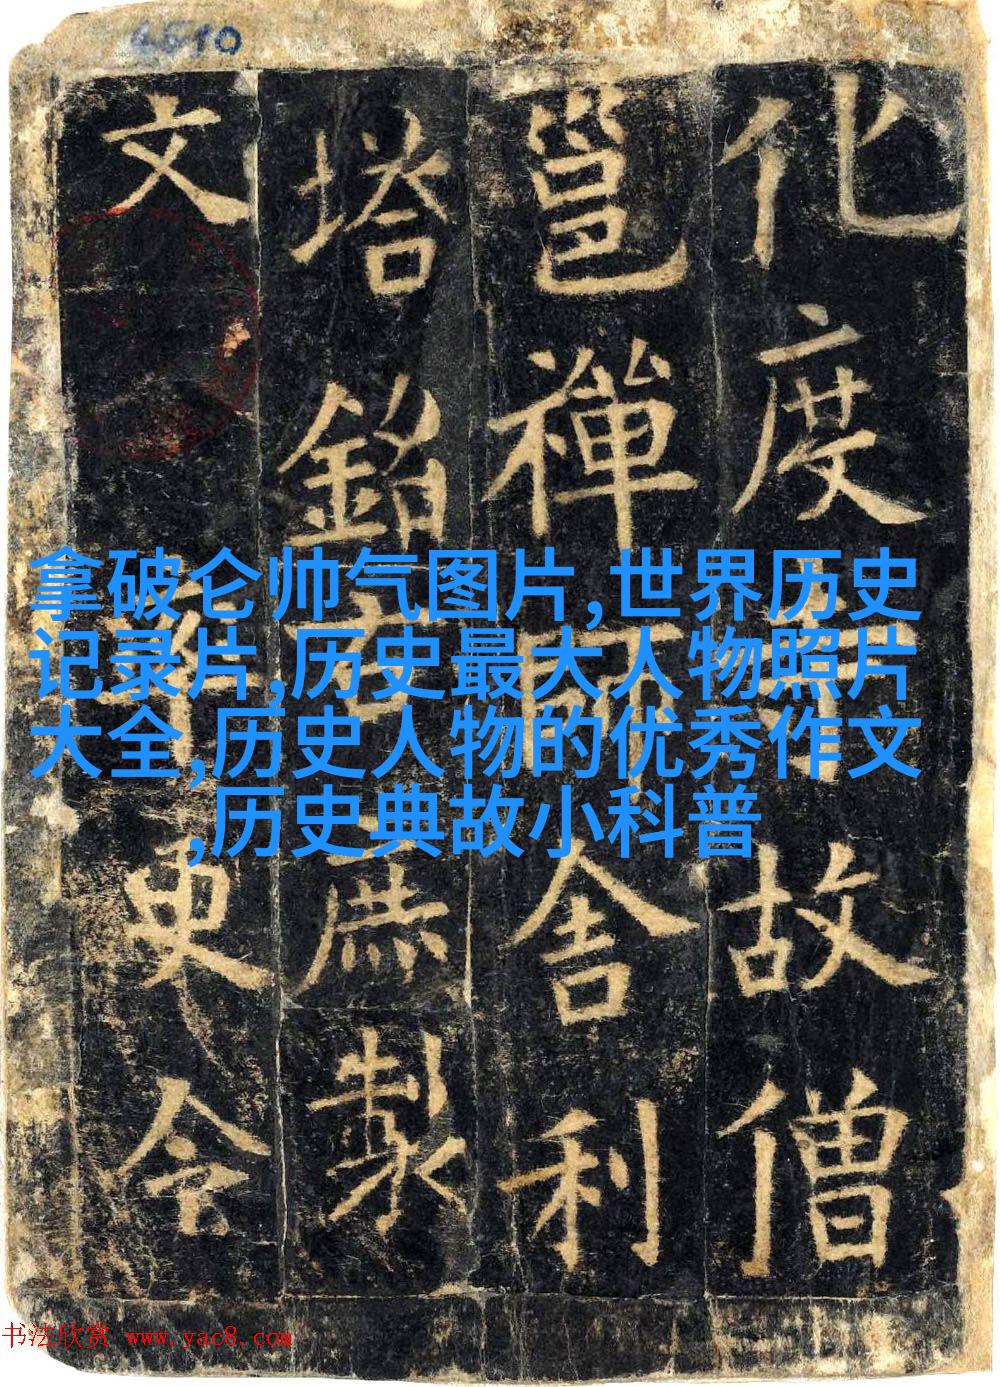 化度寺故僧
邕禪師舍利
塔銘右庶製
文率更令
拿破仑帅气图片,世界历史
记录片,历史最大人物照片
大全,历史人物的优秀作文
,历史典故小科普
书法欣赏 www.yac8.com